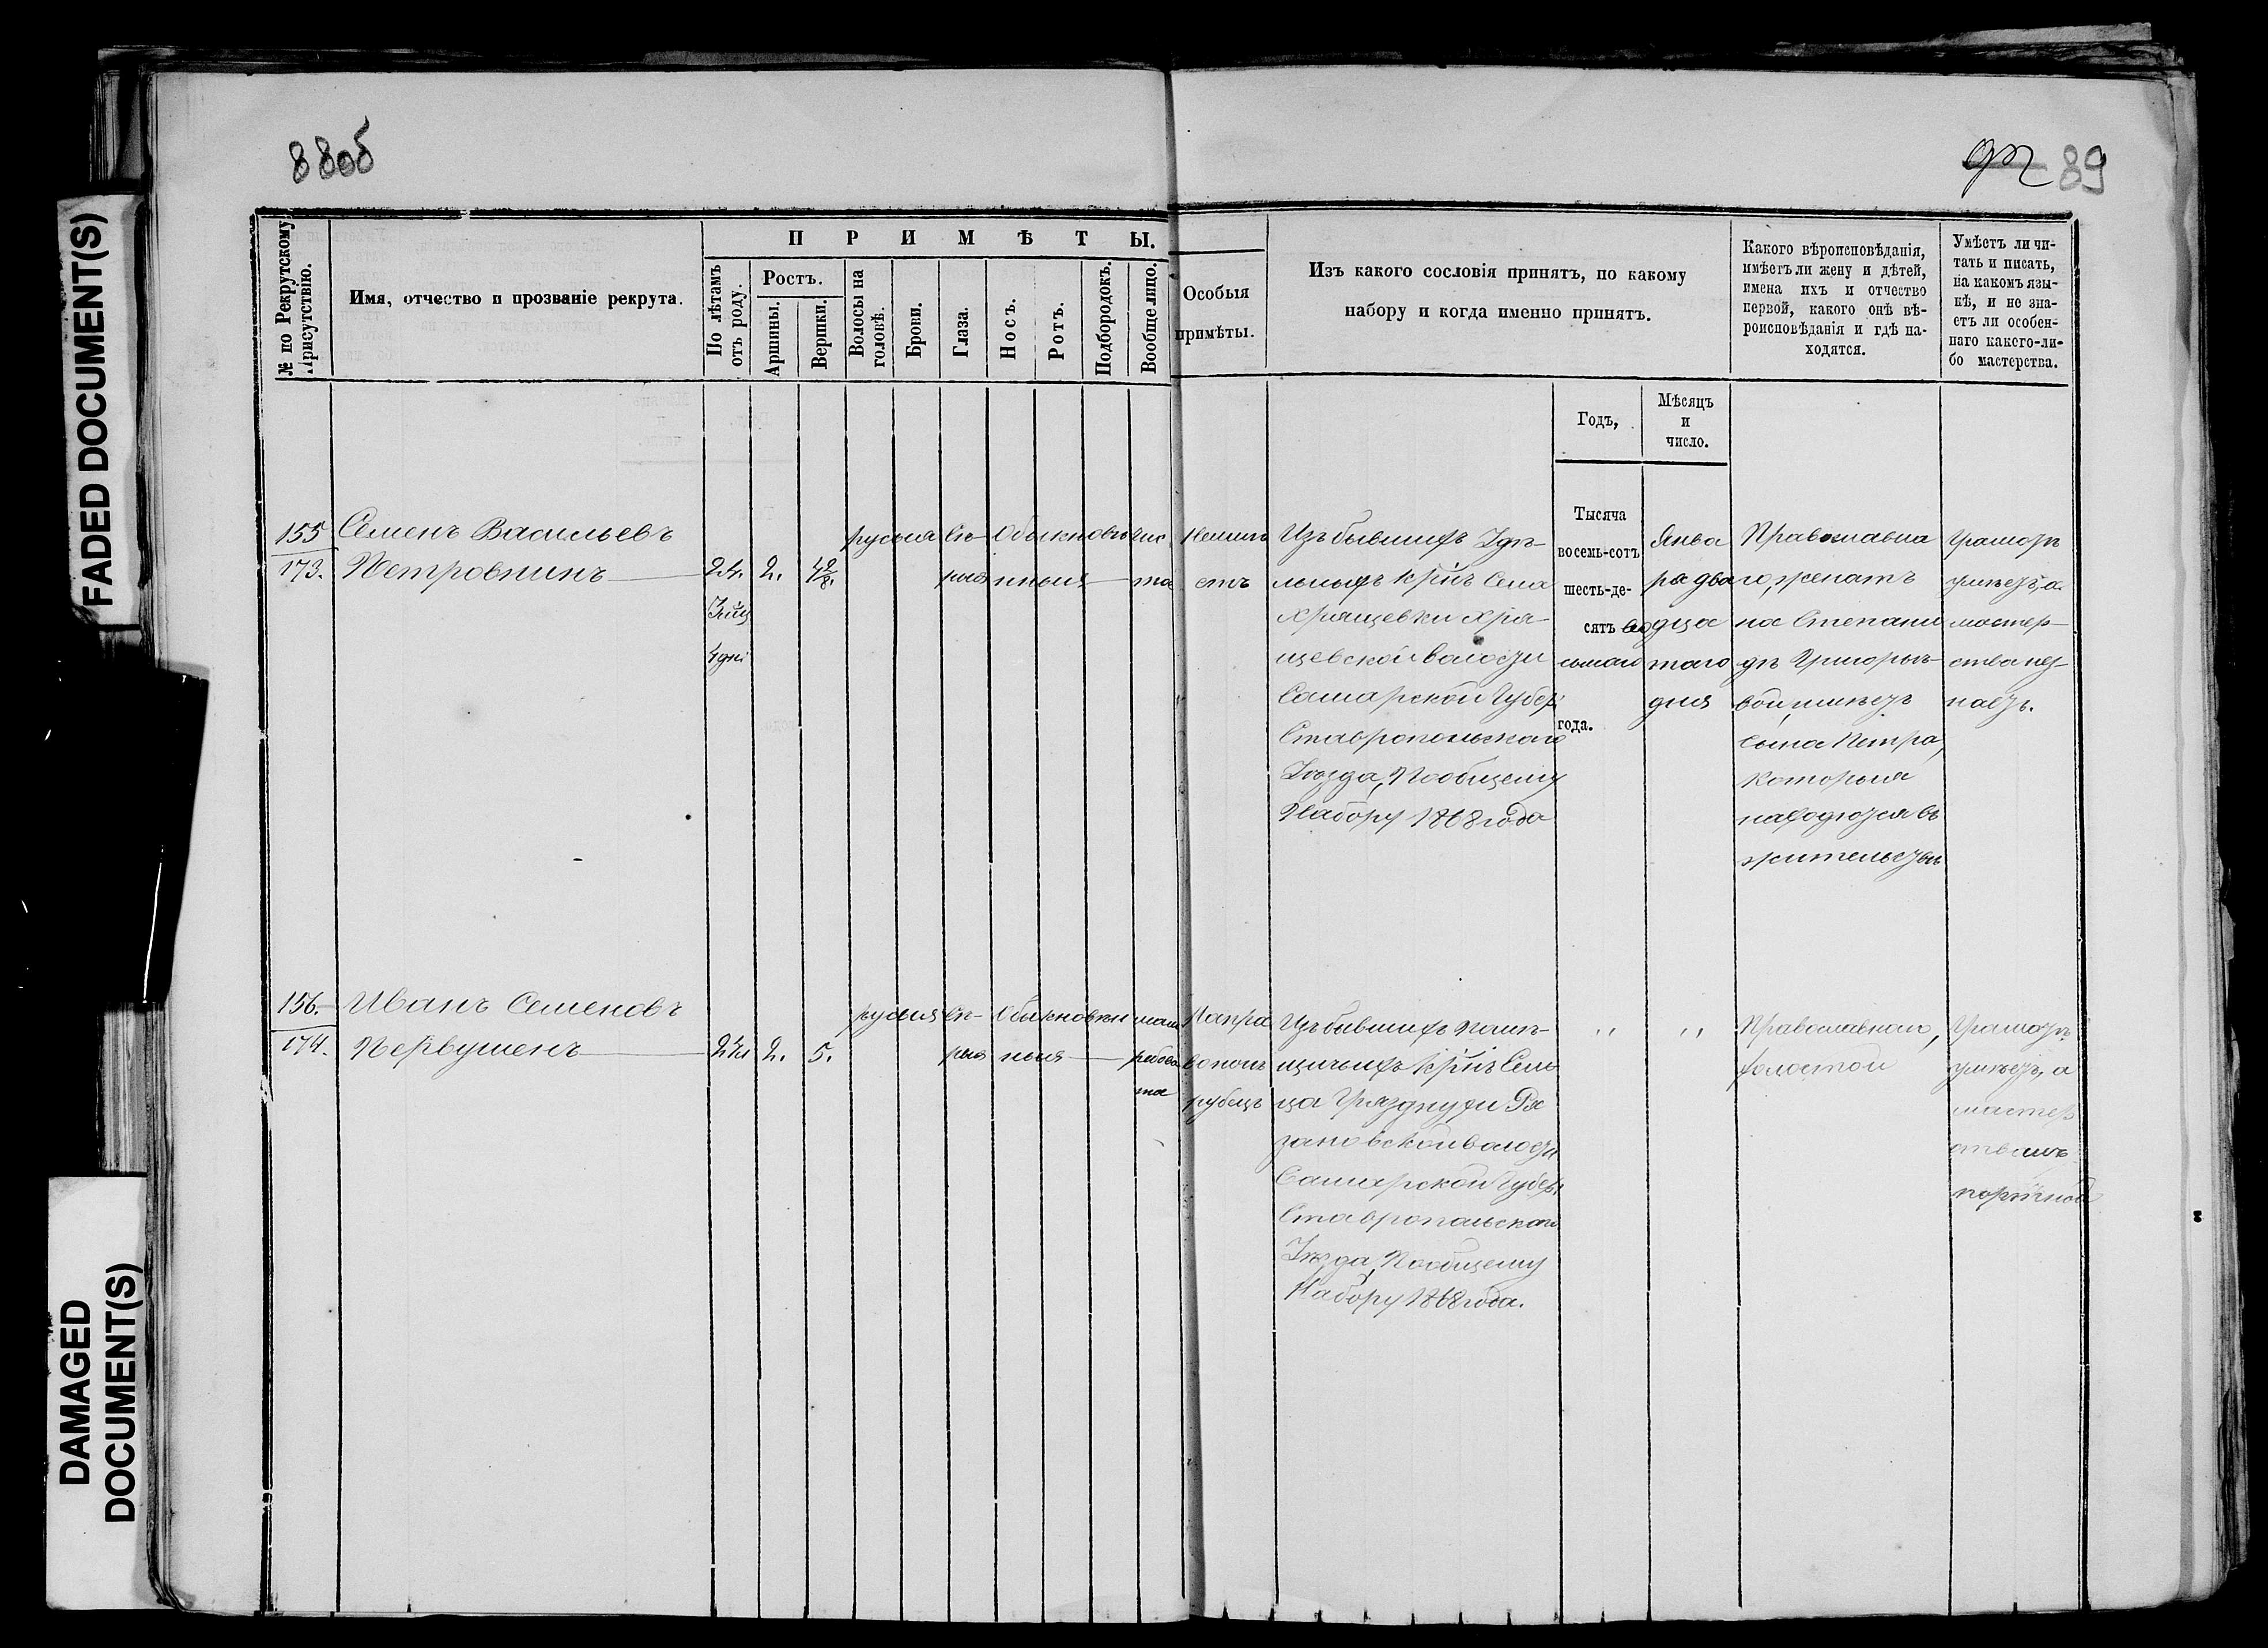 FADED DOCUMENT(S)
DAMAGED
DOCUMENT(S)
88об
89
№ по Рекрутскому
Присутствію.
Имя, отчество и прозваніе рекрута.
ПРИМѢТЫ.
По лѣтамъ
отъ роду.
Ростъ.
Аршины.
Вершки.
Волосы на
головѣ.
Брови.
Глаза.
Носъ.
Ротъ.
Подбородокъ.
Вообще лицо.
Особыя
примѣты.
Изъ какого сословія принятъ, по какому
набору и когда именно принятъ.
Какого вѣроисповѣданія,
имѣетъ ли жену и дѣтей,
имена ихъ и отчество
первой, какого онѣ вѣ-
роисповѣданія и гдѣ на-
ходятся.
Умѣетъ ли чи-
тать и писать,
на какомъ язы-
кѣ, и не зна-
етъ ли особен-
наго какого-ли-
бо мастерства.
Годъ,
Мѣсяцъ
и
число.
155
173.
Семенъ Васильевъ
Петровнинъ
24.
4 дні
2.
4 2/8.
русыя
сѣ-
рыя
Обыкнове
нныя
чис
та
Неимѣ
етъ
Изъ бывшихъ Удѣ-
льныхъ крнъ Села
Хрящевки Хря-
щевской волости
Самарской Губер
Ставропольскаго
Уѣзда, По общему
Набору 1868 года
Тысяча
восемь-сотъ
шесть-де-
сятъ во
сьмаго
года.
Янва
ря два
дца
таго
дня
Православна
го, женатъ
на Степани
дѣ Григорье-
вой, имѣетъ
сына Петра,
которыя
находятся въ
жительствѣ
Грамотѣ
умѣетъ, а
мастер-
ства нез-
наетъ.
156.
174.
Иванъ Семеновъ
Первушенъ
24
2.
5.
русыя
сѣ-
рыя
Обыкновен
ныя
рябова
та
Направо
рубецъ
Изъ бывшихъ помѣ-
щичьихъ крнъ Сель
ца Грязнухи Ря
зановской волости
Самарской Губер.
Ставропольскаго
Уѣзда, По общему
Набору 1868 года.
,,
,,
Православнаго,
холостой
Грамотѣ
умѣетъ, а
мастер
ствомъ
портной